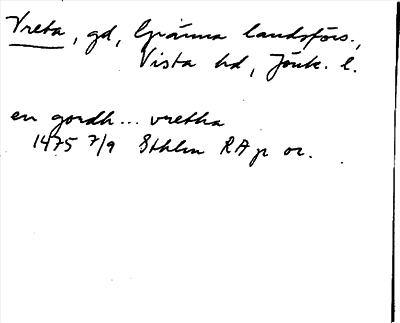 Vreta, gd, Gränna landsförs.,
Vista hd, Jönk. l.
en gordh... vretha
1475 7/9 Sthlm RA p or.